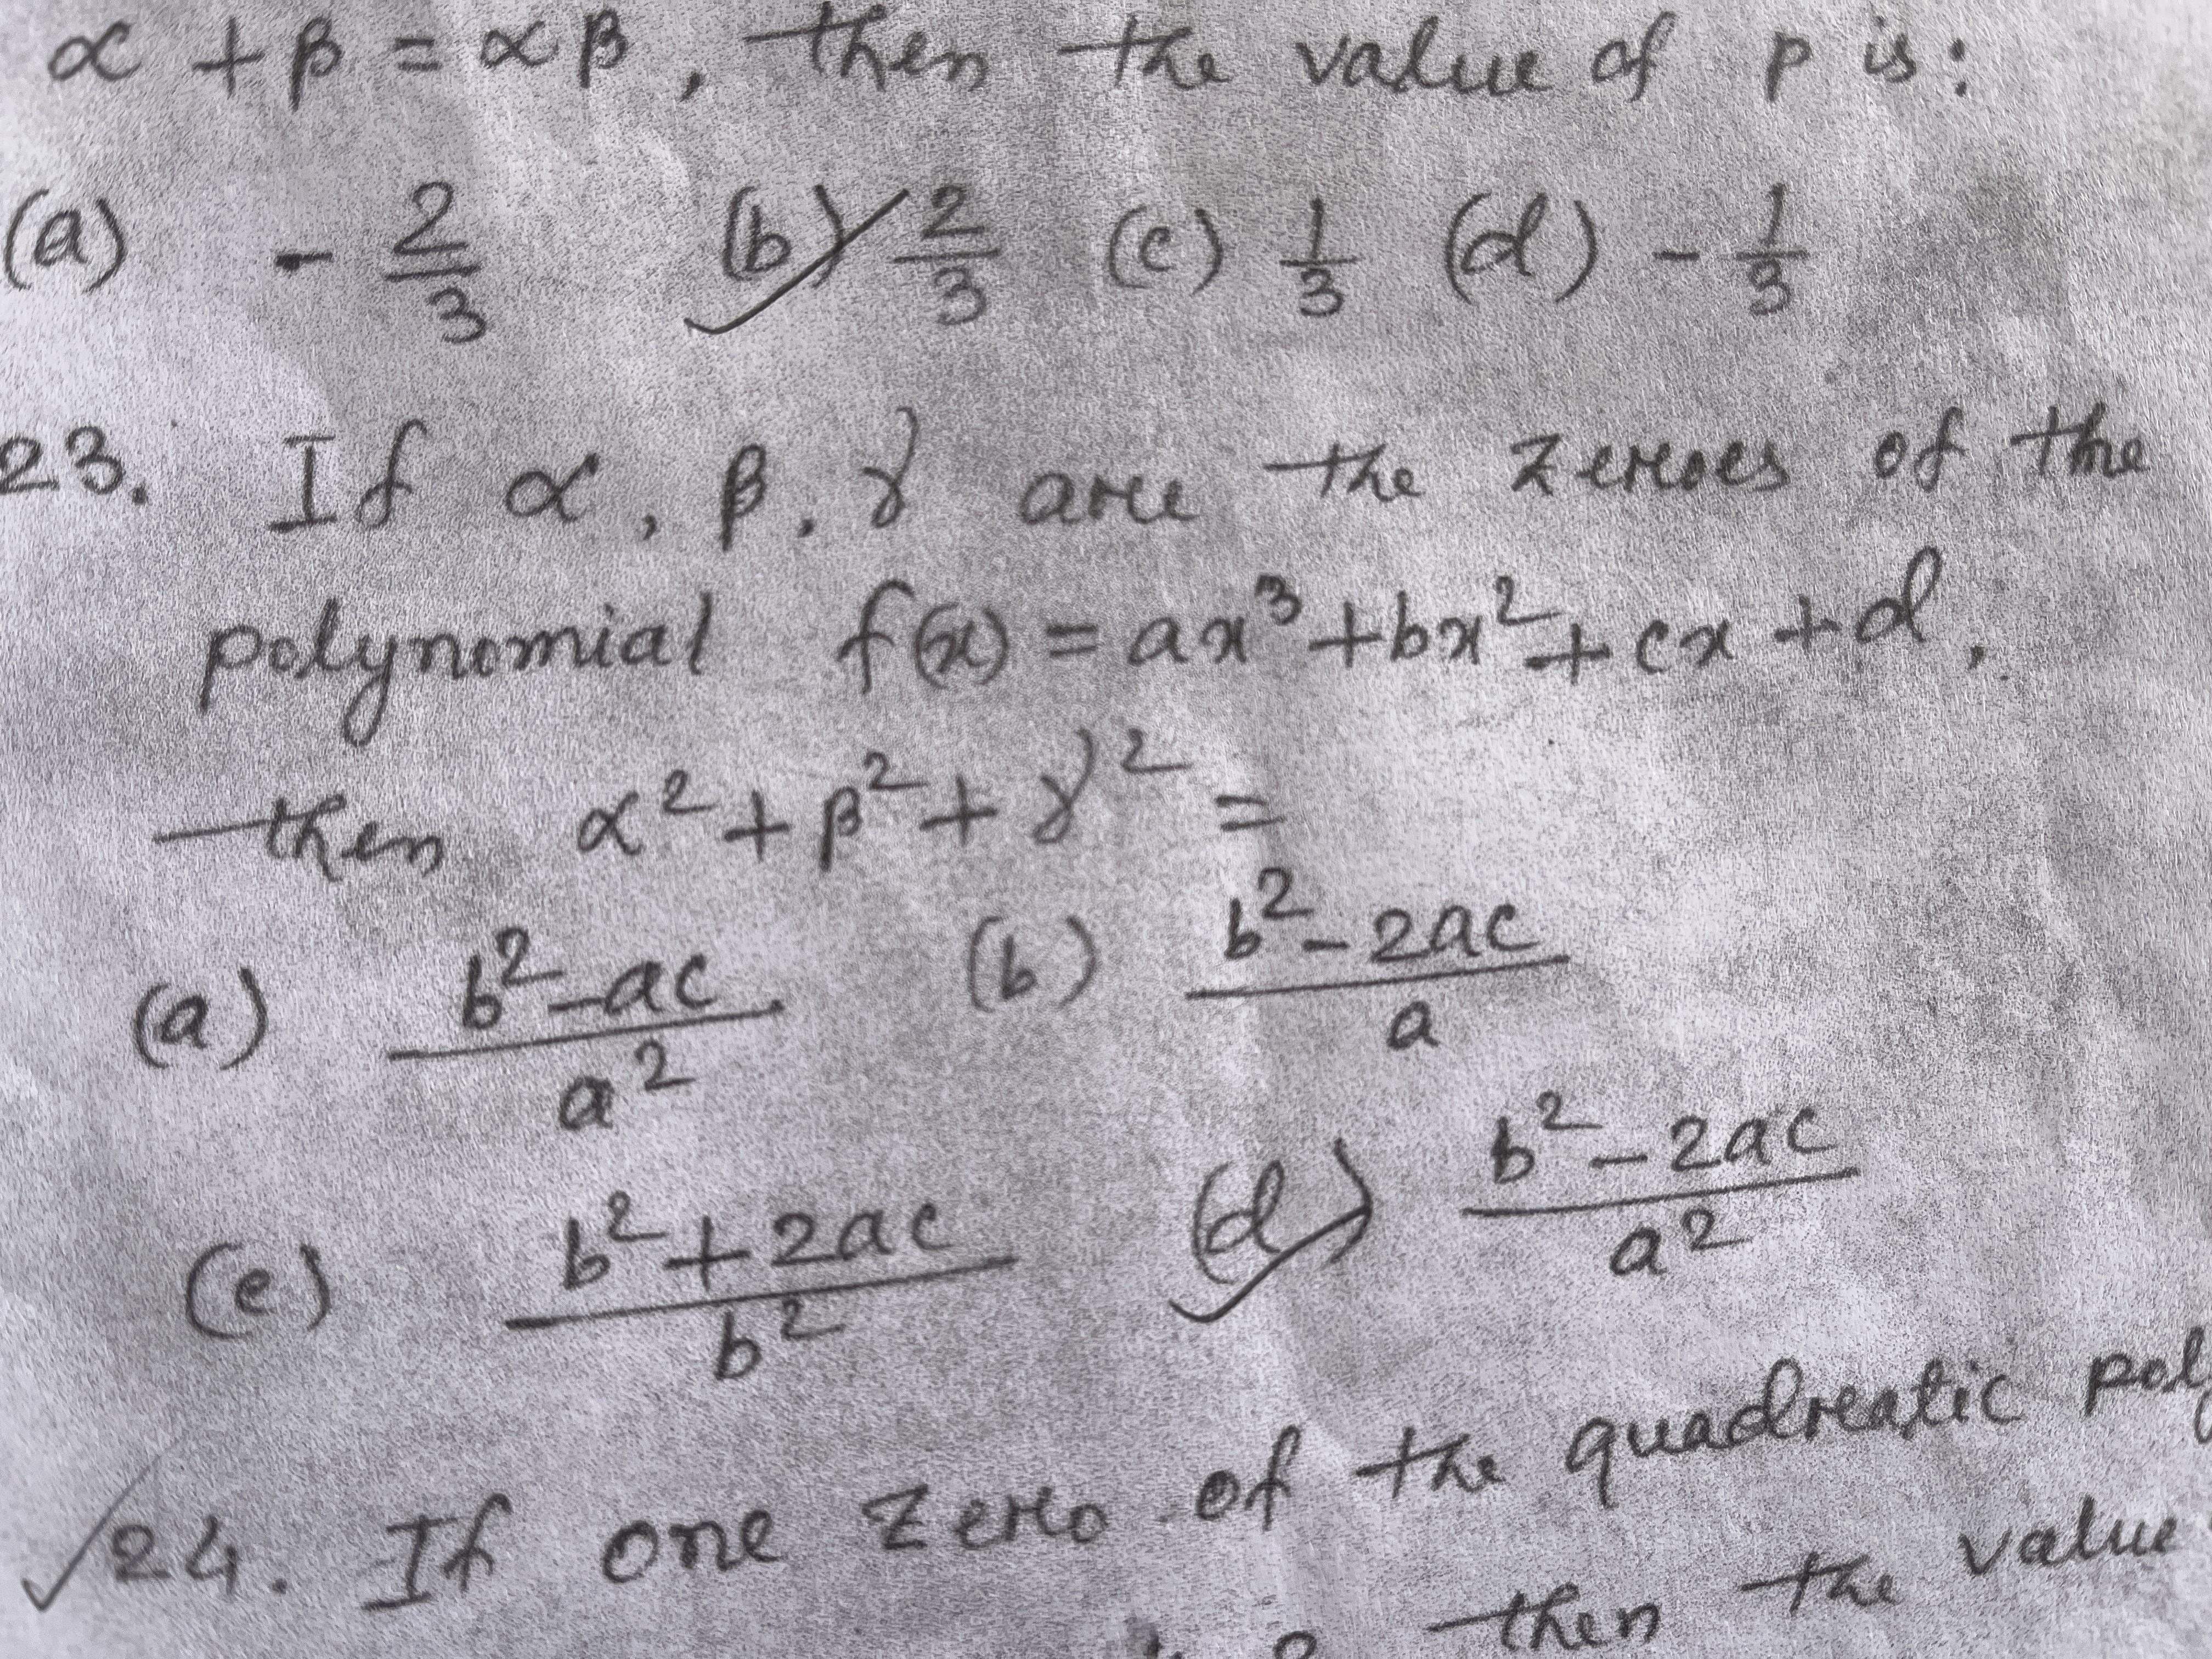 α + β = αβ, then the value of p is:
(a) - 2/3 (b) 2/3 (c) 1/3 (d) - 1/3
23. If α, β, γ are the zeroes of the
polynomial f(x) = ax³ + bx² + cx + d,
then α² + β² + γ² =
(a) b² - ac / a² (b) b² - 2ac / a
(c) b² + 2ac / b² (d) b² - 2ac / a²
24. If one zero of the quadratic
then the value